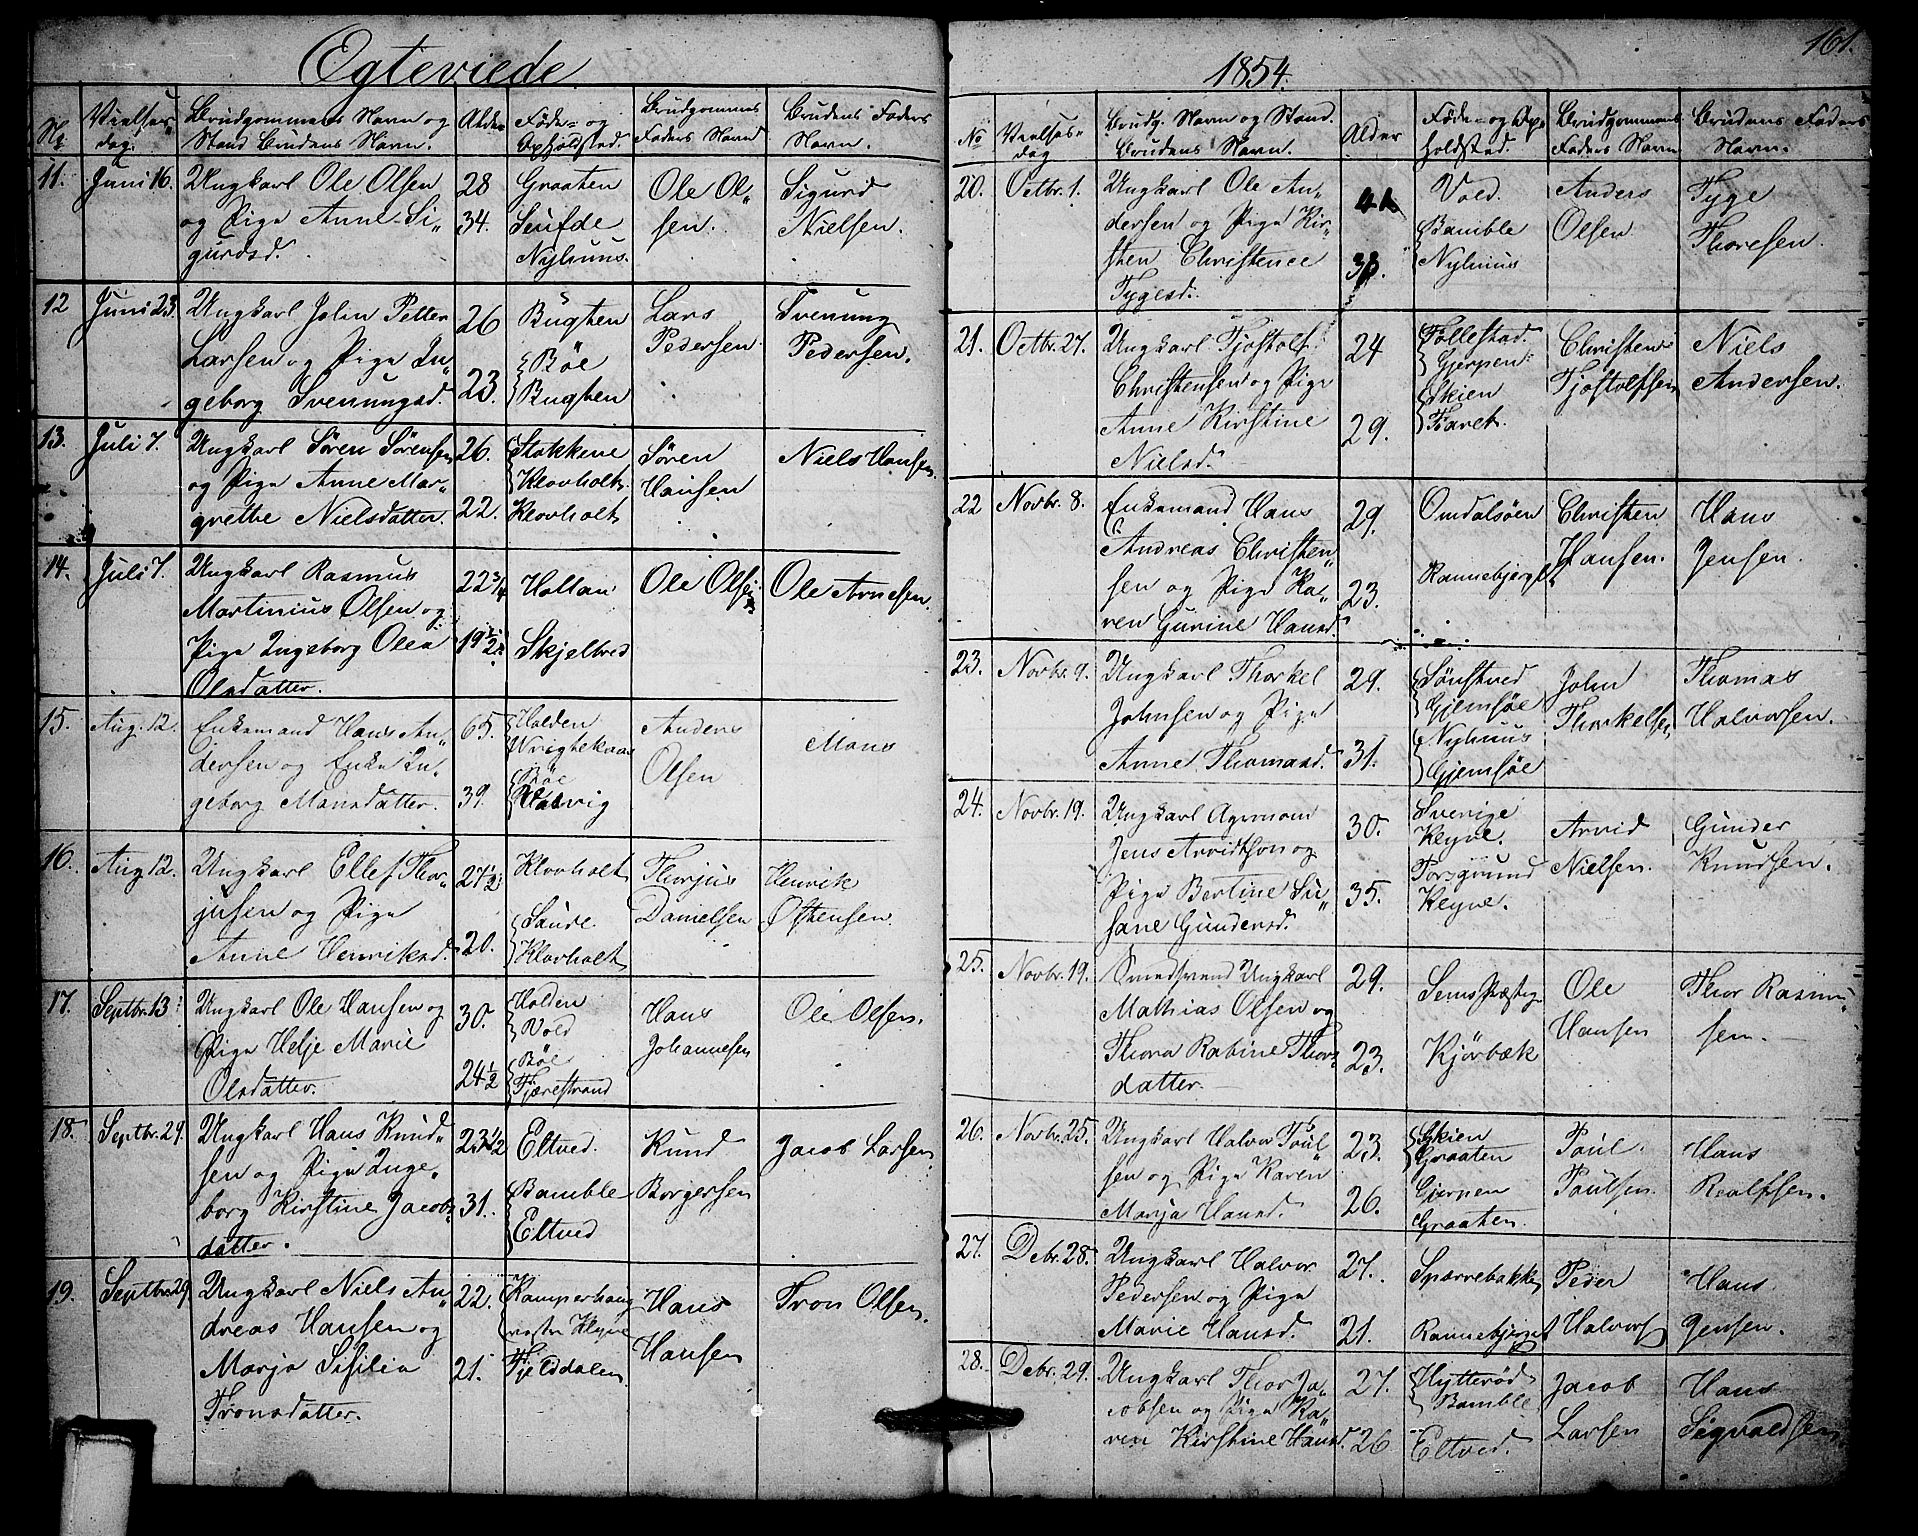 Egteviede
No
Vielses-
dag.
Brudgommens Navn og
Stand Brudens Navn.
Alder
Føde- og
Opholdsted.
Brudgommens
Faders Navn
Brudens Faders
Navn.
11.
Juni 16.
Ungkarl Ole Olsen
og Pige Anne Si-
gurdsd.
28
34.
Graaten
Nyhuus.
Ole Ol-
sen.
Sigurd
Nielsen.
12
Juni 23.
Ungkarl John Petter
Larsen og Pige In-
geborg Svenungsd.
26
23.
Bugten
Bøe
Bugten
Lars
Pedersen
Svenung
Pedersen.
13.
Juli 7.
Ungkarl Sören Sörensen
og Pige Anne Mar-
grethe Nielsdatter.
26.
22.
Stokkene
Klovholt.
Klovholt
Sören
Hansen
Niels Hansen.
14.
Juli 7.
Ungkarl Rasmus
Martinius Olsen og
Pige Ingeborg Olea
Olsdatter.
22 3/4
19 1/2
Holtan
Skjelbred
Ole Olsen
Ole Arnesen.
15.
Aug. 12.
Enkemand Hans An-
dersen og Enke In-
geborg Monsdatter.
65.
39.
Holden
Bøe
Anders
Olsen
Mons
16.
Aug 12.
Ungkarl Ellef Thor-
jusen og Pige
Anne Henriksd.
27 1/2
20.
Klovholt
Saude
Klovholt
Thorjus
Danielsen
Henrik
Østensen.
17.
Septbr. 13
Ungkarl Ole Hansen og
Pige Helje Marie
Olsdatter.
30.
24 1/2
Holden
Vold
Bøe
Tjærestrand
Hans
Johannesen
Ole Olsen.
18.
Septbr. 29.
Ungkarl Hans Knud-
sen og Pige Inge-
borg Kirstine Jacobs-
datter.
23 1/2
31.
Eltved.
Bamble
Eltved
Knud
Borgersen
Jacob Larsen
19.
Septbr. 29.
Ungkarl Niels An-
dreas Hansen og
Marja Sisilia
Tronsdatter.
22.
21.
Kamperhaug
Fjelddalen
Hans
Hansen
Tron Olsen.
161.
1854.
No
Vielses-
dag
Brudg. Navn og Stand.
Brudens Navn.
Alder
Føde- og Op-
holdsted.
Brudgommens
Faders Navn
Brudens Faders
Navn.
20.
Octbr. 1.
Ungkarl Ole An-
dersen og Pige Kir-
sten Christence
Tygesd.
Vold.
Bamble
Nyhuus
Anders
Olsen
Tyge
Thoresen.
21.
Octbr. 27.
Ungkarl Tjostolf
Christensen og Pige
Anne Kirstine
Nielsd.
24
29.
Follestad.
Gjerpen
Skien
Faret.
Christen
Tjostolfsen
Niels
Andersen.
22
Novbr. 8.
Enkemand Hans
Andreas Christen-
sen og Pige Ka-
ren Gurine Hansd.
29.
23.
Omdalsøen
Rannebjerget
Christen
Hansen.
Hans
Jensen.
23.
Novbr. 9.
Ungkarl Thorkel
Johnsen og Pige
Anne Thomasd.
29.
31.
Sönstved
Gjemsøe
Nyhuus
Gjemsøe
John
Thorkelsen
Thomas
Halvorsen.
24.
Novbr. 19.
Jens Arvidtson og
Pige Bertine Su-
sane Gundersd.
30.
35.
Sverige
Klyve.
Porsgrund
Klyve.
Arvid
Nielsen.
Gunder
Knudsen.
25.
Novbr. 19.
Ungkarl
Mathias Olsen og
Thora Rabine Thors-
datter.
29.
23.
Kjörbæk
Ole
Hansen
Thor Rasmu-
sen.
26.
Novbr. 25.
Ungkarl Halvor Poul-
sen og Pige Karen
Marja Hansd.
23.
26.
Skien
Graaten
Gjerpen
Graaten.
Poul
Poulsen.
Hans
Realfsen.
27.
Debr. 28.
Ungkarl Halvor
Pedersen og Pige
Marie Hansd.
27.
21.
Sparrebakke
Rannebjerget
Peder
Halvors
Hans
Jensen.
28.
Debr. 29.
Ungkarl Thor Ja-
cobsen og Pige Ka-
ren Kirstine Hansd.
27.
26
Hytterød
Bamble
Eltved.
Jacob
Larsen
Hans
Sigvaldsen